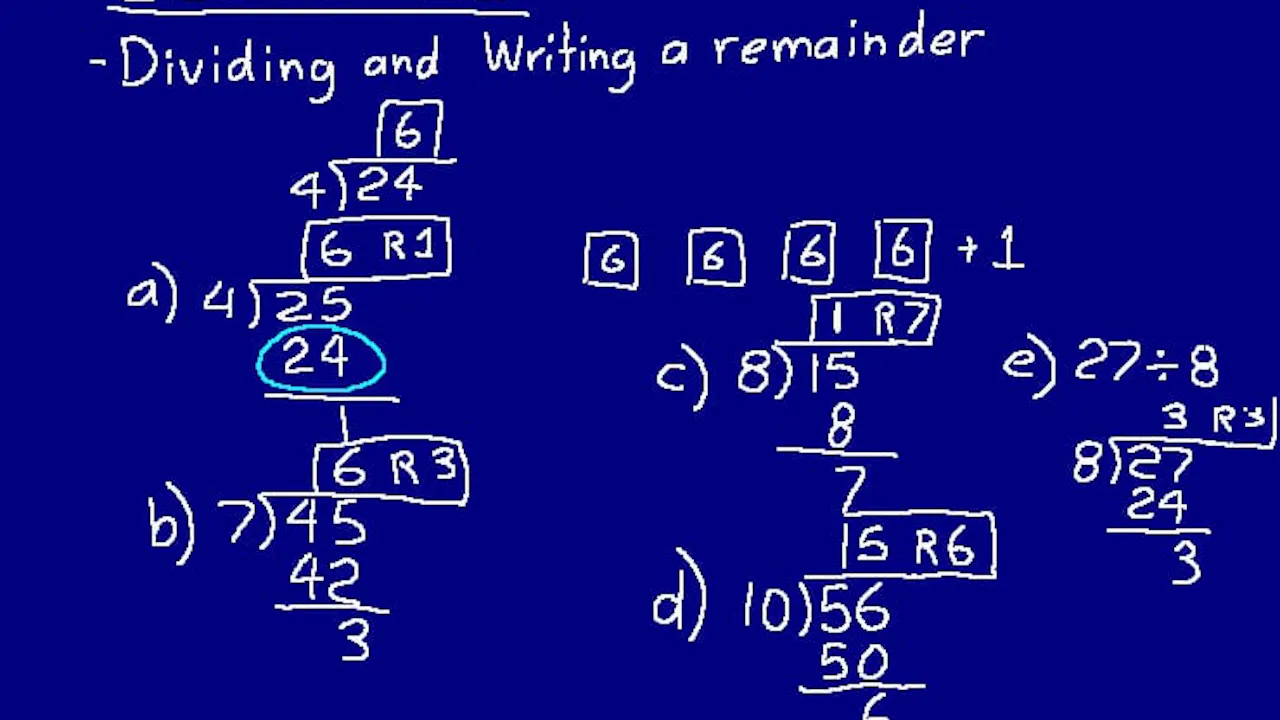 - Dividing and Writing a remainder
6
4)24
6 R1
a) 4)25
24
1
6 R3
b) 7)45
42
3
6 6 6 6 + 1
1 R7
c) 8)15
8
7
5 R6
d) 10)56
50
6
e) 27÷8
3 R3
8)27
24
3